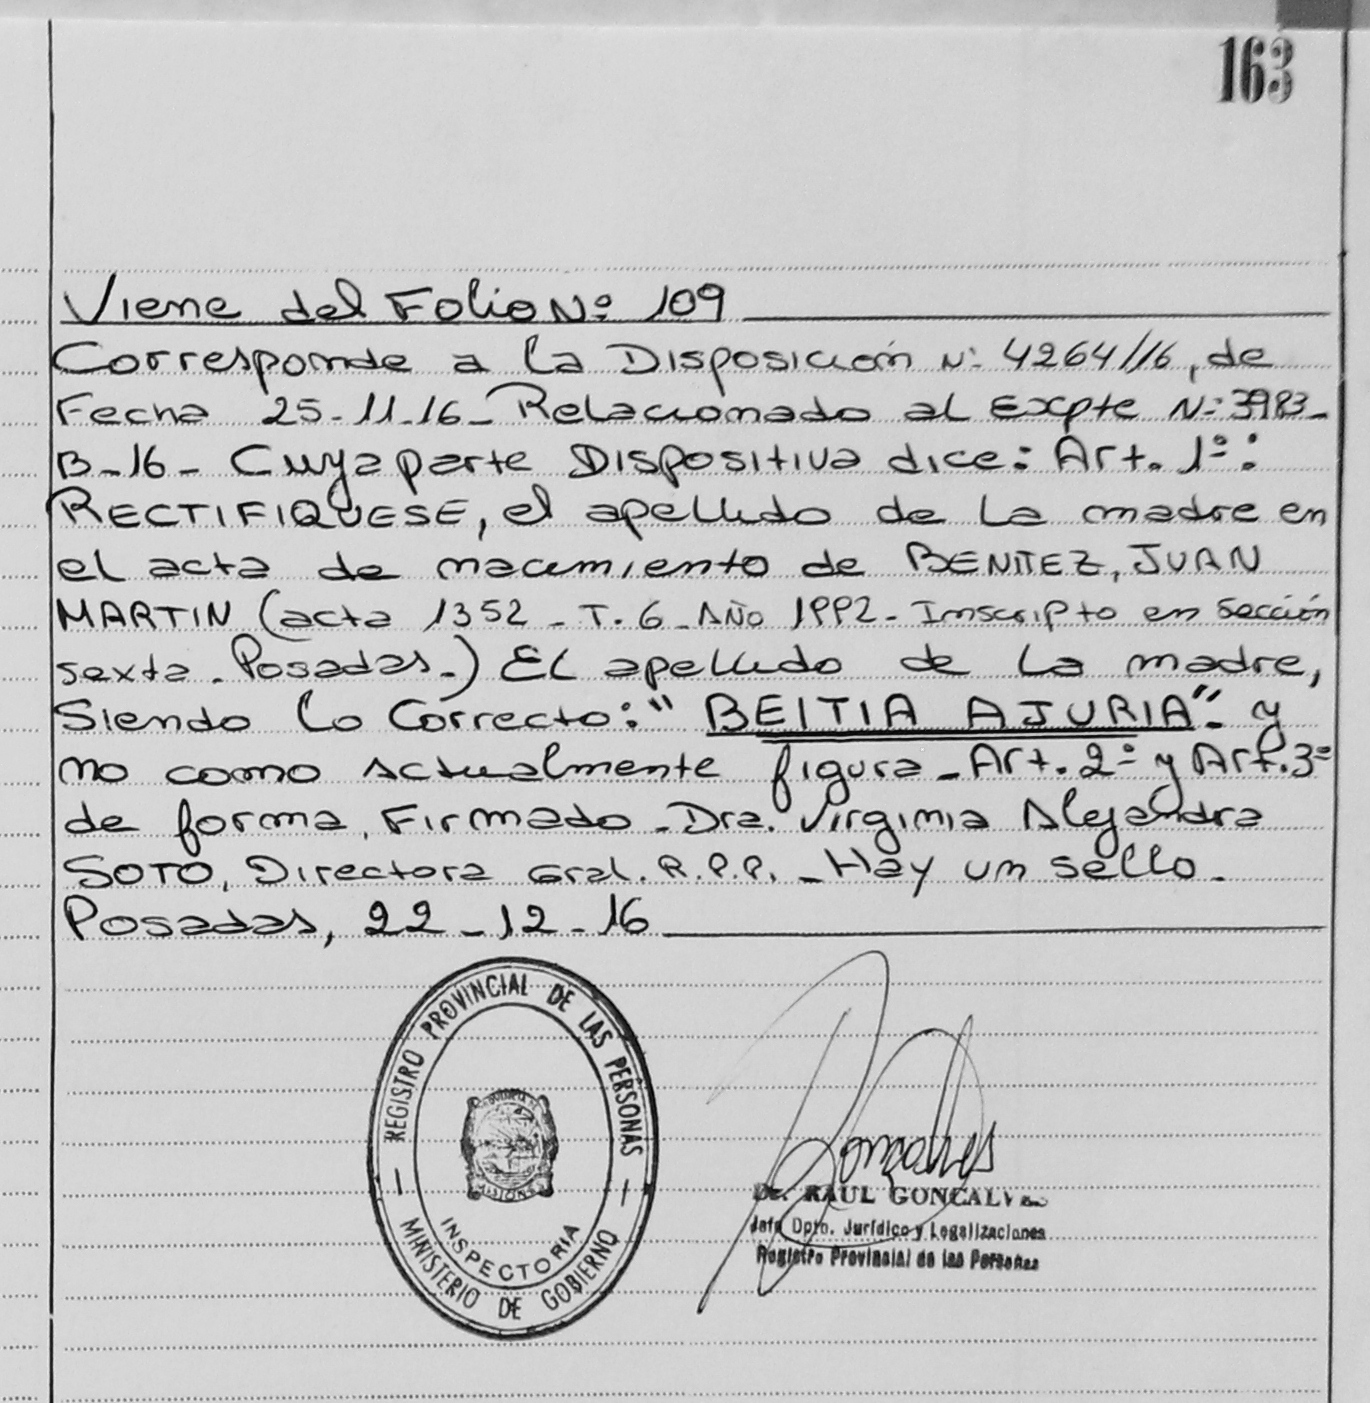 163
Viene del Folio Nº 109
Corresponde a la Disposición Nº 4264/16, de
Fecha 25-11-16- Relacionado al Expte Nº 3983-
B-16- Cuya parte Dispositiva dice: Art. 1º:
RECTIFIQUESE, el apellido de la madre en
el acta de nacimiento de BENITEZ, JUAN
MARTIN (acta 1352 - T. 6 - AÑO 1992- Inscripto en sección
sexta - Posadas.-) El apellido de la madre,
Siendo lo correcto: "BEITIA AJURIA". y
no como actualmente figura - Art. 2º y Art. 3º
de forma, Firmado - Dra. Virginia Alejandra
SOTO, Directora Gral. R.P.P. - Hay un sello.
Posadas, 22-12-16
REGISTRO PROVINCIAL DE LAS PERSONAS
INSPECTORIA
MINISTERIO DE GOBIERNO
MISIONES
Goncalves
Dr. RAUL GONCALVES
Jefe Dpto. Jurídico y Legalizaciones
Registro Provincial de las Personas